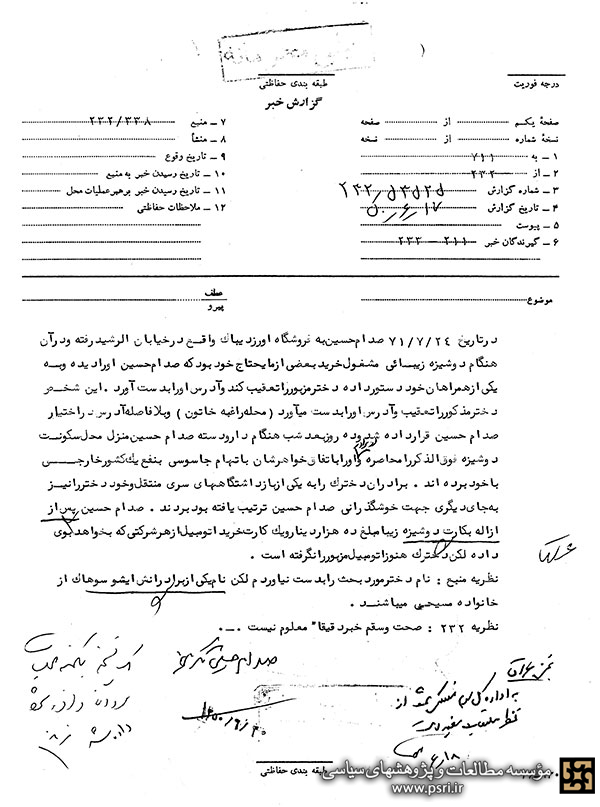 درجه فوریت
طبقه بندی حفاظتی
گزارش خبر
صفحهٔ یکم از صفحه
نسخهٔ شماره از نسخه
۱ ـ به ۷۱۱
۲ ـ از ۲۳۲
۳ ـ شماره گزارش
۴ ـ تاریخ گزارش
۵ ـ پیوست
۶ ـ گیرندگان خبر ۲۱۱ - ۲۳۳
۷ ـ منبع ۲۳۲/۳۳۸
۸ ـ منشأ
۹ ـ تاریخ وقوع
۱۰ ـ تاریخ رسیدن خبر به منبع
۱۱ ـ تاریخ رسیدن خبر برهبرعملیات محل
۱۲ ـ ملاحظات حفاظتی
موضوع
عطف
پیرو
در تاریخ ۷۱/۷/۲۴ صدام حسین به فروشگاه اورزدیباک واقع در خیابان الرشید رفته و در آن
هنگام دوشیزه زیبائی مشغول خرید بعضی از مایحتاج خود بود که صدام حسین او را دیده و به
یکی از همراهان خود دستور داده دختر مزبور را تعقیب کند و آدرس او را بدست آورد . این شخص
دختر مذکور را تعقیب و آدرس او را بدست میآورد ( محله راغبه خاتون ) و بلافاصله آدرس در اختیار
صدام حسین قرار داده شده روز بعد شب هنگام دار و دسته صدام حسین منزل محل سکونت
دوشیزه فوق الذکر را محاصره و او را باتفاق خواهرشان باتهام جاسوسی بنفع یک کشور خارجی
با خود برده اند . برادران دخترک را به یکی از بازداشتگاههای سری منتقل و خود دختر را نیز
به جای دیگری جهت خوشگذرانی صدام حسین ترتیب یافته بود بردند . صدام حسین پس از
ازاله بکارت دوشیزه زیبا مبلغ ده هزار دینار و یک کارت خرید اتومبیل از هر شرکتی که بخواهد بوی
داده لکن دخترک هنوز اتومبیل مزبور را نگرفته است .
نظریه منبع : نام دختر مورد بحث را بدست نیاوردم لکن نام یکی از برادرانش ایشو سوهاک از
خانواده مسیحی میباشند .
نظریه ۲۳۲ : صحت و سقم خبر دقیقا" معلوم نیست .ـ.
صدام حسین تکریتی
مؤسسه مطالعات و پژوهشهای سیاسی
www.psri.ir
طبقه بندی حفاظتی